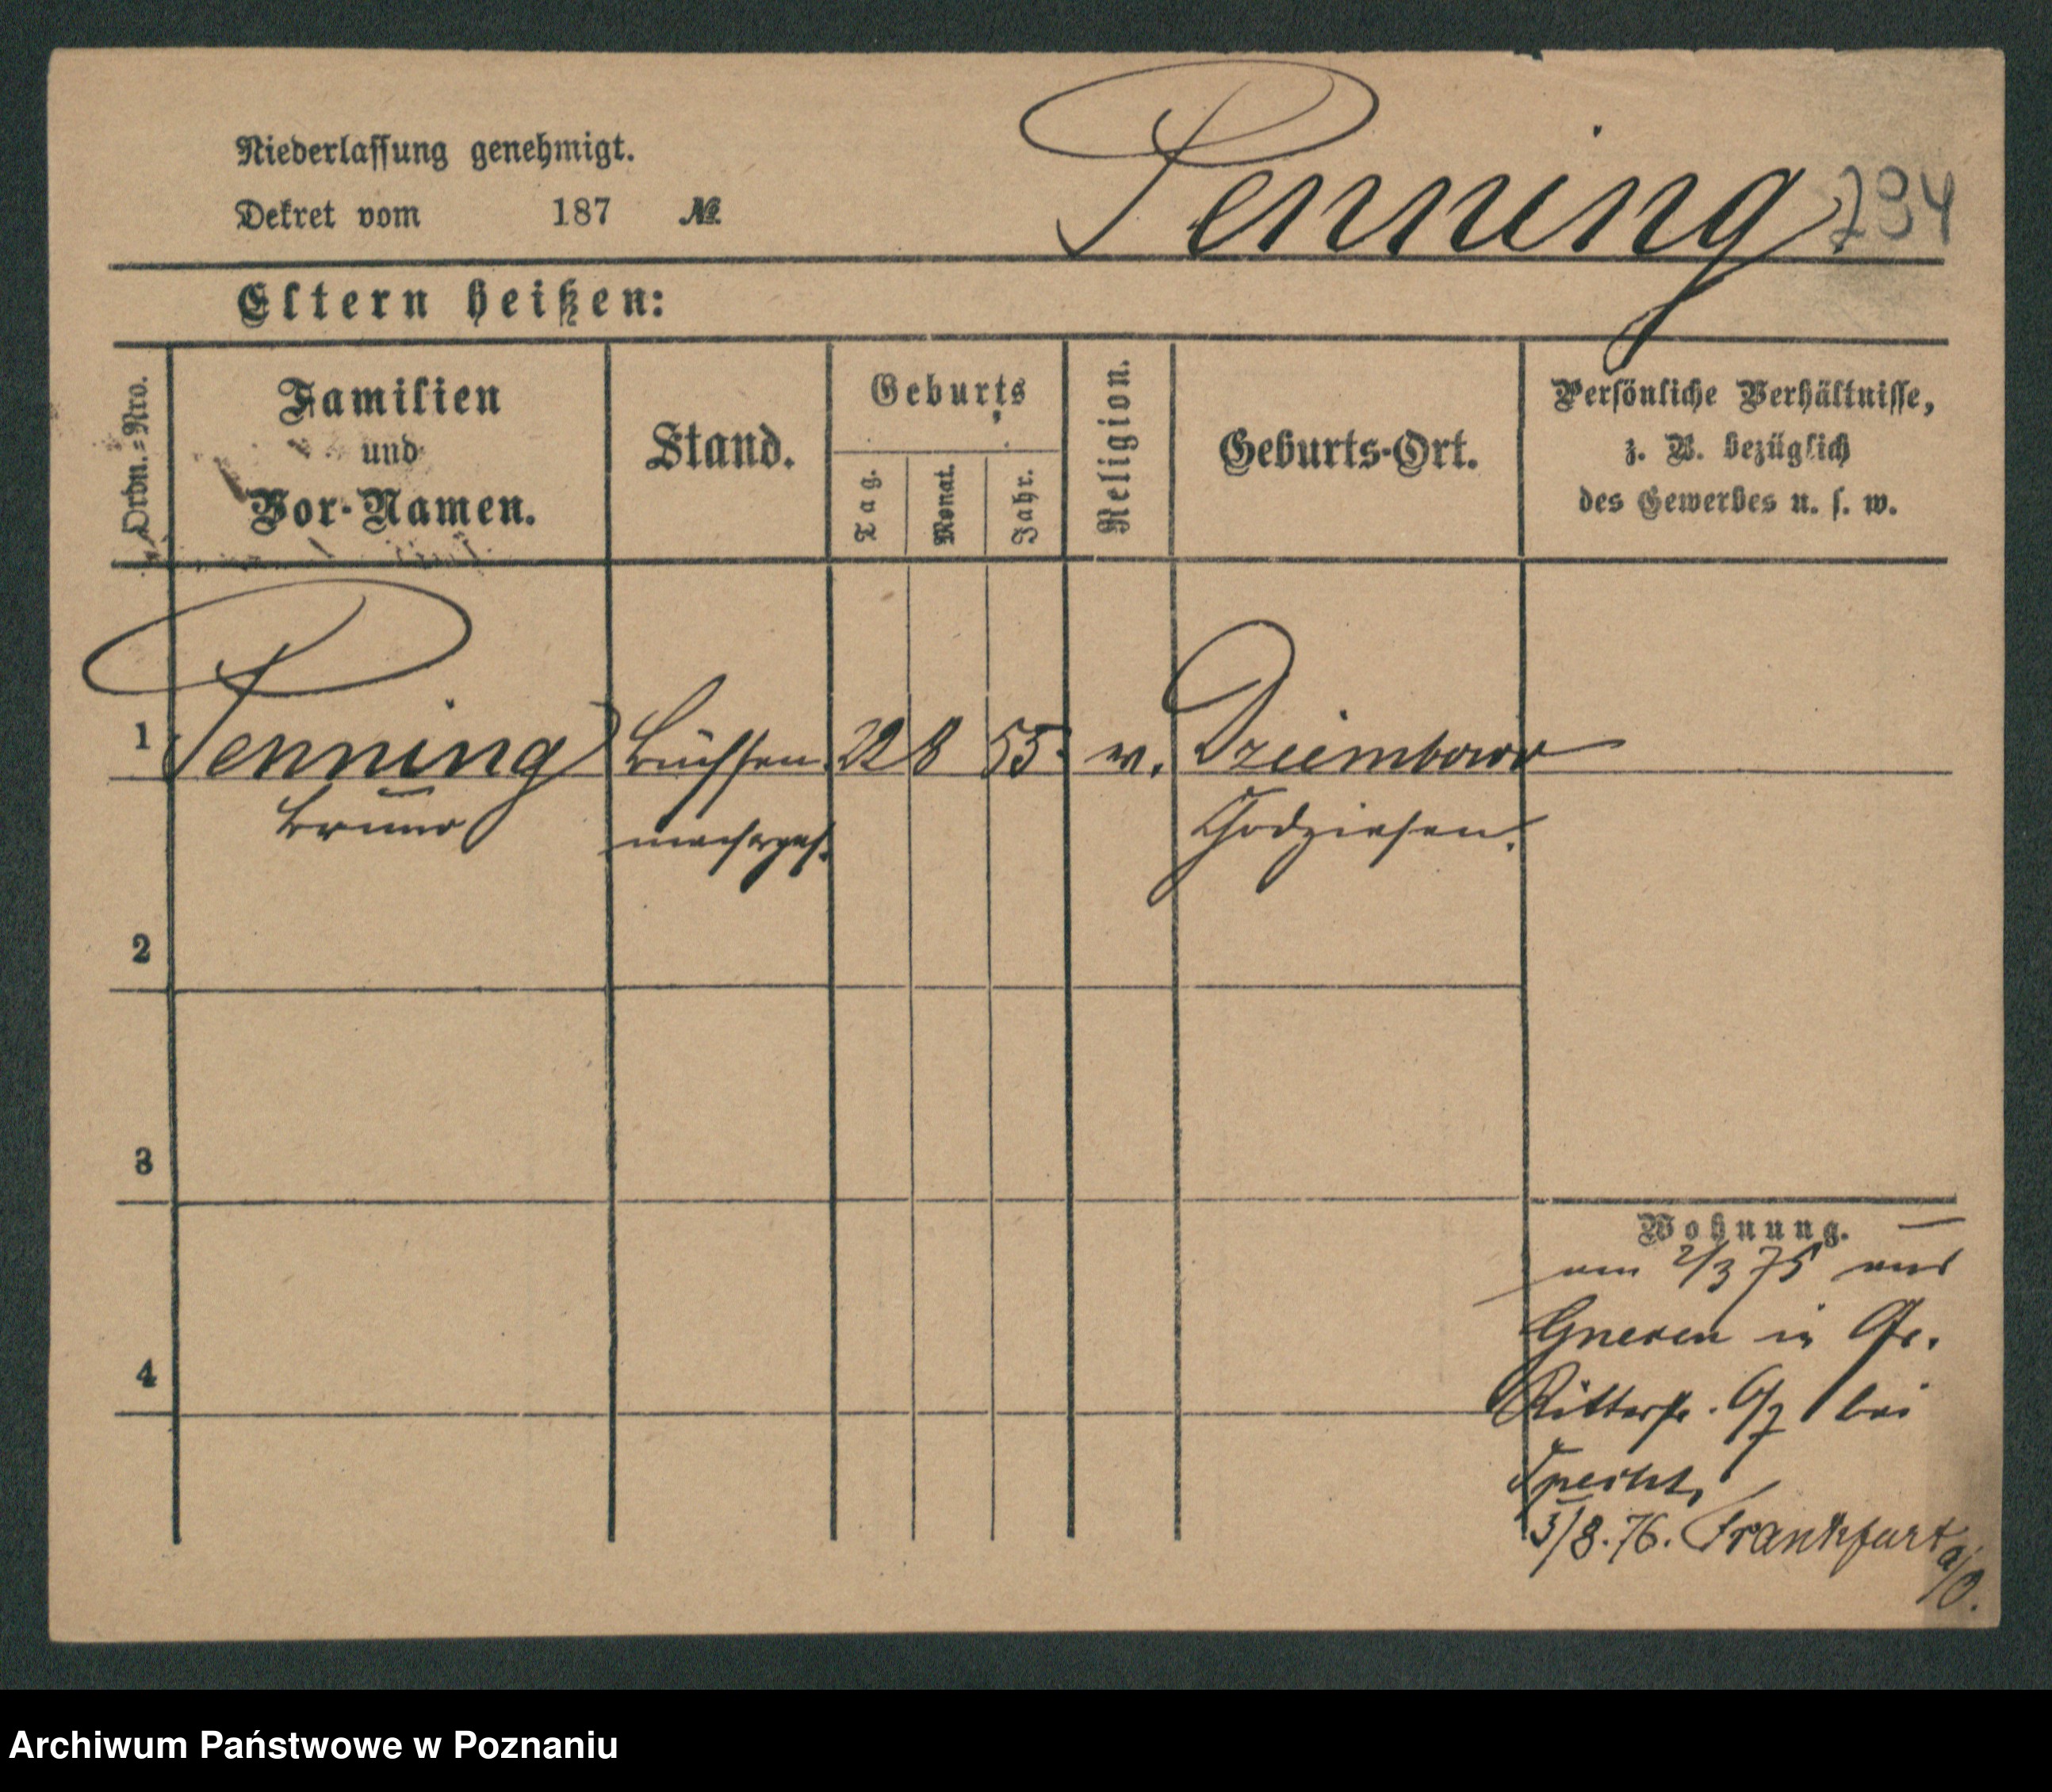 Niederlassung genehmigt.
Dekret vom 187 №
Penning
794
Eltern heißen:
Ordn.=Nro.
Familien
und
Vor-Namen.
Stand.
Geburts
Tag.
Monat.
Jahr.
Religion.
Geburts-Ort.
Persönliche Verhältnisse,
z. B. bezüglich
des Gewerbes u. s. w.
1 Penning Büchsen 22 8 55 Dziembowo
Bruno macherges. Chodziesen.
2
3
4
Wohnung.
am 2/3 75 aus
Gnesen in Gr.
Ritterstr. 6/7 bei
Specht,
3/8. 76. Frankfurt a/O.
Archiwum Państwowe w Poznaniu